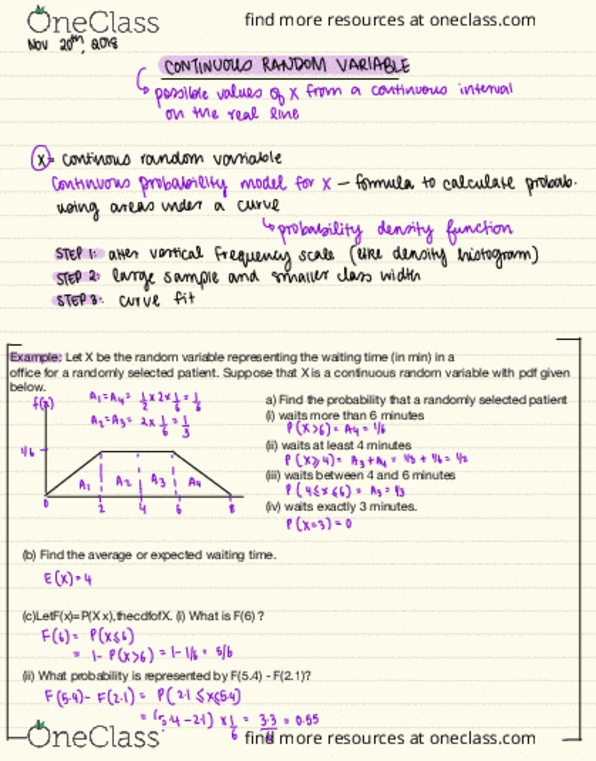 OneClass
find more resources at oneclass.com
Nov 20th, 2018
CONTINUOUS RANDOM VARIABLE
possible values of X from a continuous interval
on the real line
X = continous random variable
Continuous probability model for X – formula to calculate probab.
using areas under a curve
probability density function
STEP 1: alter vertical frequency scale (like density histogram)
STEP 2: large sample and smaller class width
STEP 3: curve fit
Example: Let X be the random variable representing the waiting time (in min) in a
office for a randomly selected patient. Suppose that X is a continuous random variable with pdf given
below.
f(x)
A1 = A4 = 1/2 x 2 x 1/6 = 1/6
A2 = A3 = 2 x 1/6 = 1/3
1/6
A1 A2 A3 A4
0 2 4 6 8
a) Find the probability that a randomly selected patient
(i) waits more than 6 minutes
P(X>6) = A4 = 1/6
(ii) waits at least 4 minutes
P(X≥4) = A3 + A4 = 1/3 + 1/6 = 1/2
(iii) waits between 4 and 6 minutes
P(4≤X≤6) = A3 = 1/3
(iv) waits exactly 3 minutes.
P(X=3) = 0
(b) Find the average or expected waiting time.
E(X) = 4
(c)LetF(x)=P(X x),thecdfofX. (i) What is F(6) ?
F(6) = P(X≤6)
= 1 - P(X>6) = 1 - 1/6 = 5/6
(ii) What probability is represented by F(5.4) - F(2.1)?
F(5.4) - F(2.1) = P(2.1 ≤ X ≤ 5.4)
= (5.4 - 2.1) x 1/6 = 3.3/6 = 0.55
OneClass
find more resources at oneclass.com